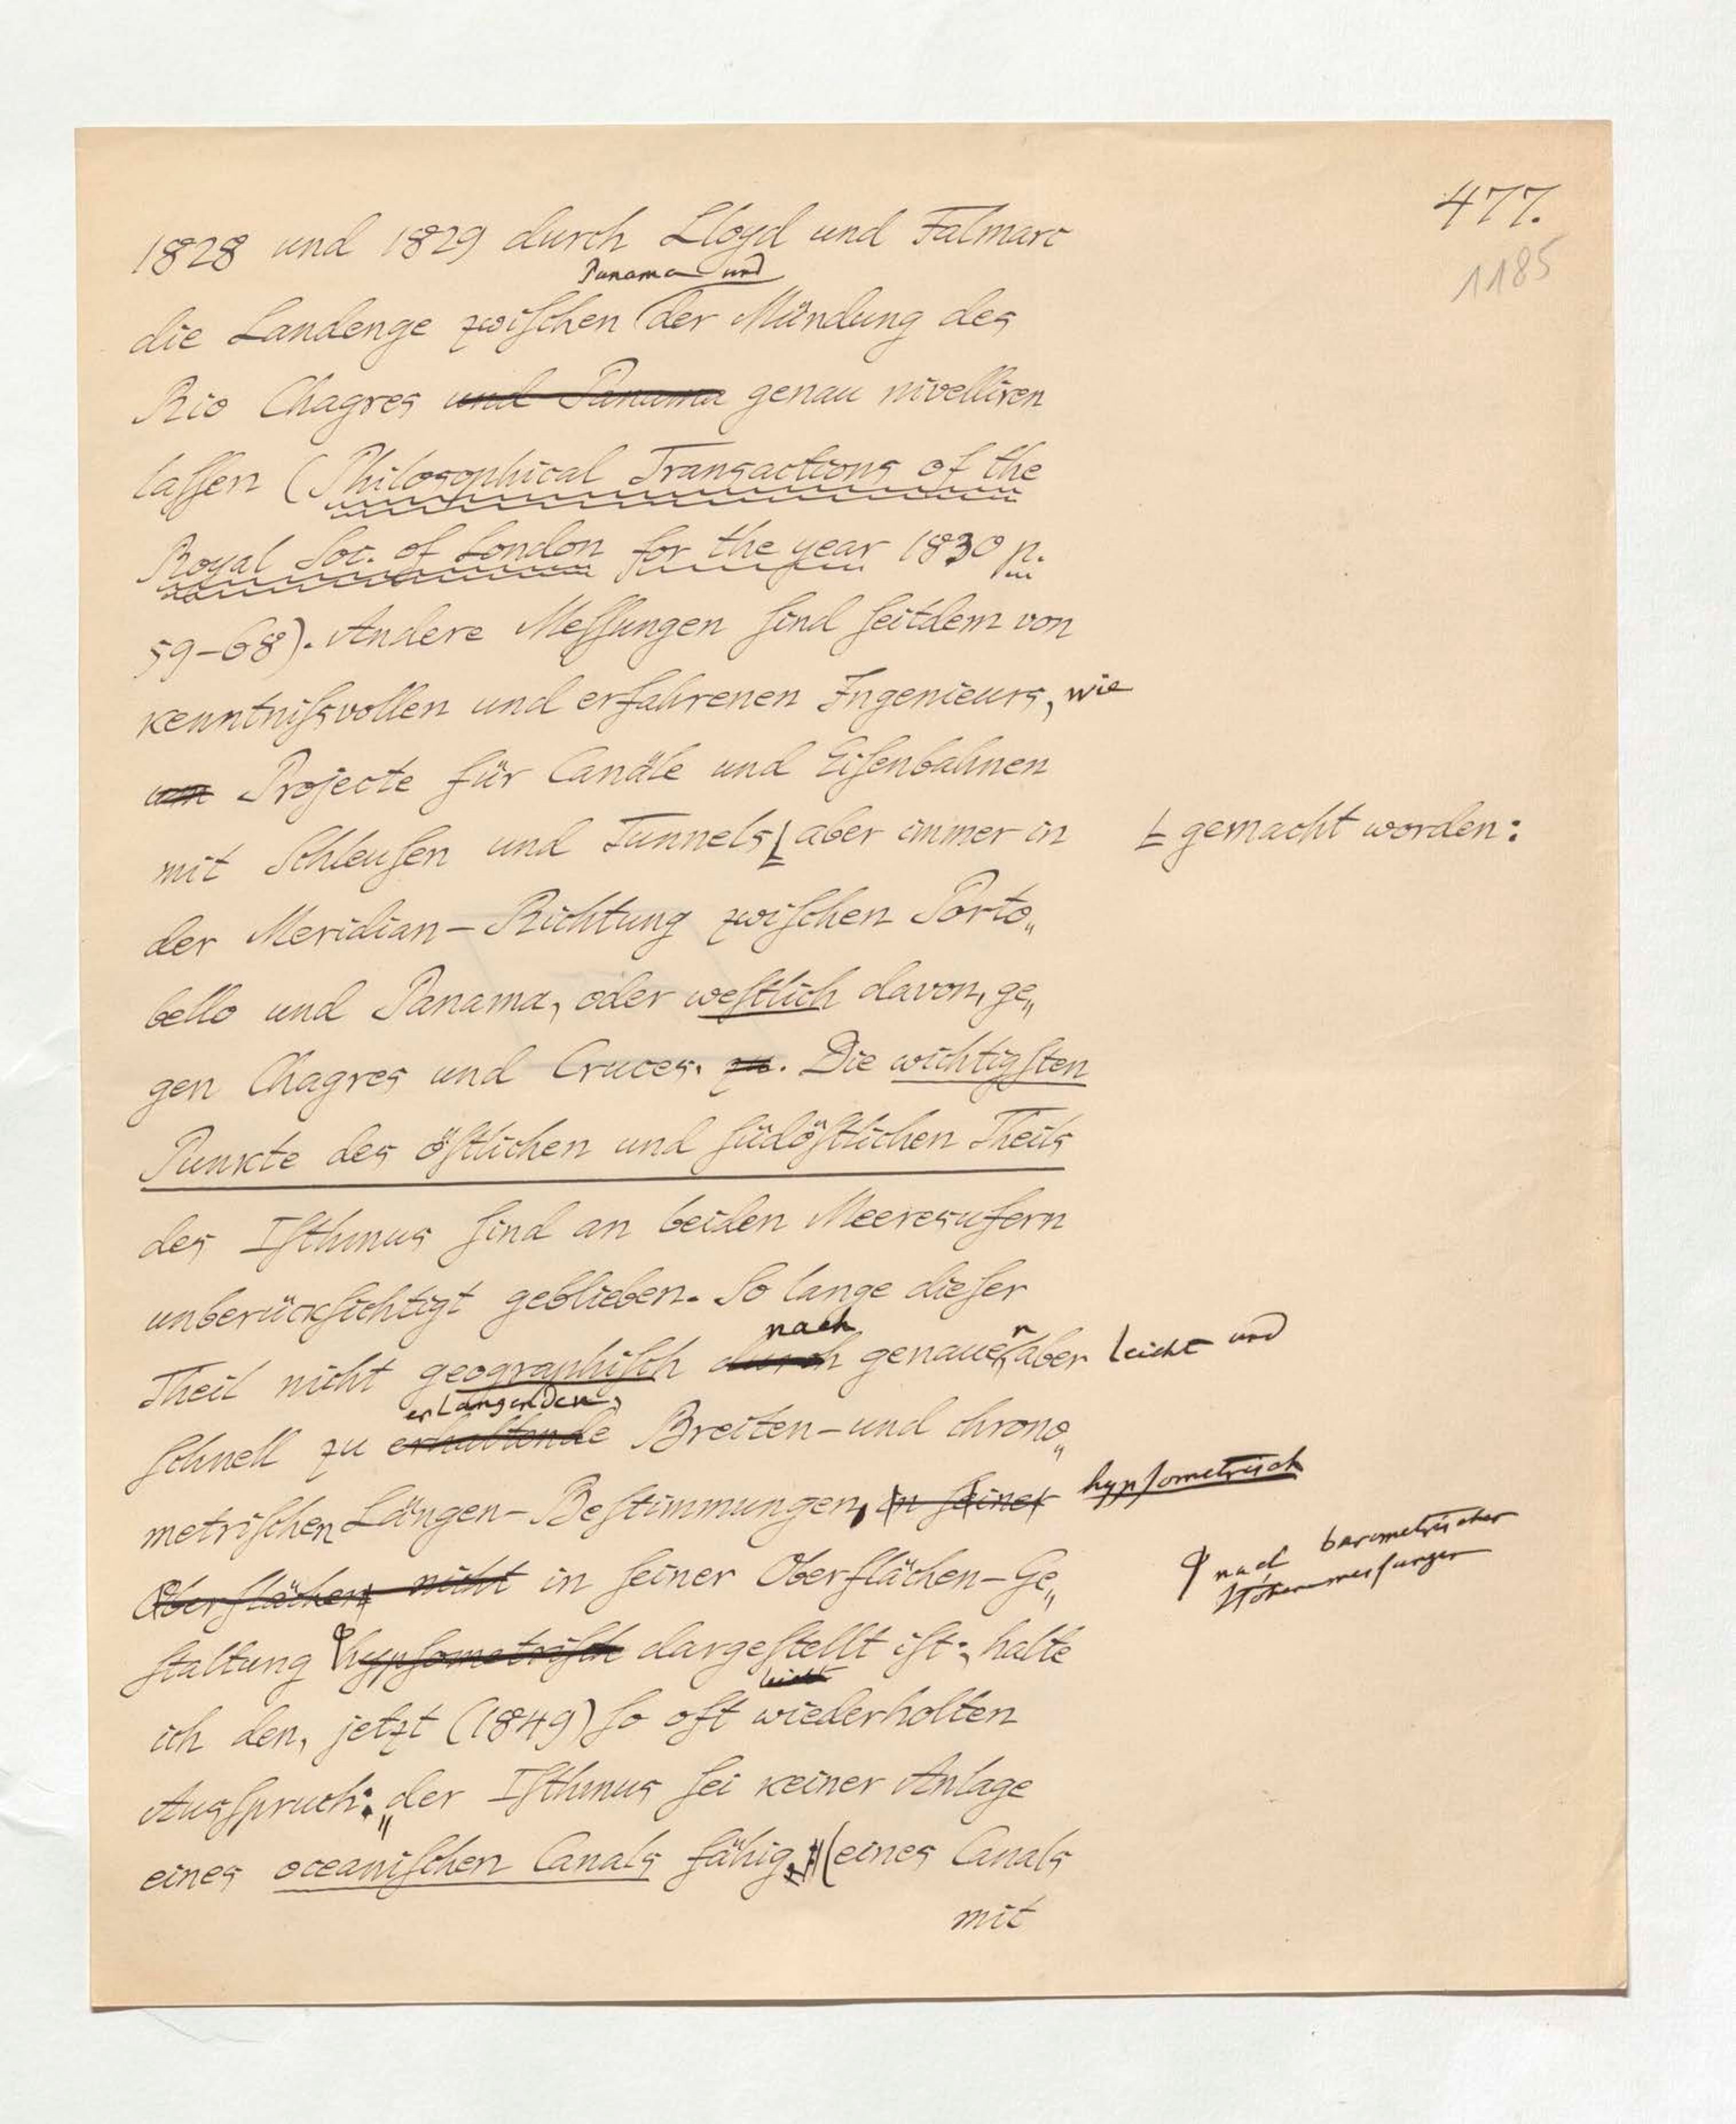 477.
1185
1828 und 1829 durch Lloyd und Falmarc
Panama und
die Landenge zwiſchen der Mündung des
Rio Chagres und Panama genau nivelliren
laſſen (Philosophical Transactions of the
Royal Soc. of London for the year 1830 p.
59-68). Andere Meſſungen ſind ſeitdem von
kenntniſsvollen und erfahrenen Ingenieurs, wie
um Projecte für Canäle und Eiſenbahnen
mit Schleuſen und Tunnels aber immer in
gemacht worden:
der Meridian-Richtung zwiſchen Porto„
bello und Panama, oder weſtlich davon, ge„
gen Chagres und Cruces. zu. Die wichtigſten
Punkte des öſtlichen und ſüdöſtlichen Theils
des Iſthmus ſind an beiden Meeresufern
unberückſichtigt geblieben. So lange dieſer
nach
Theil nicht geographiſch durch genauen, aber leicht und
erlangenden,
ſchnell zu erhaltende Breiten-und chrono„
metriſchen Längen-Beſtimmungen, in ſeiner hypſometriſch
Oberflächen nicht in ſeiner Oberflächen-Ge„
nach barometriſcher
Höhenmeſſungen
ſtaltung hypſometriſch dargeſtellt iſt; halte
leicht
ich den, jetzt (1849) ſo oft wiederholten
Ausſpruch: „der Iſthmus ſei keiner Anlage
eines oceaniſchen Canals fähig" (eines Canals
mit